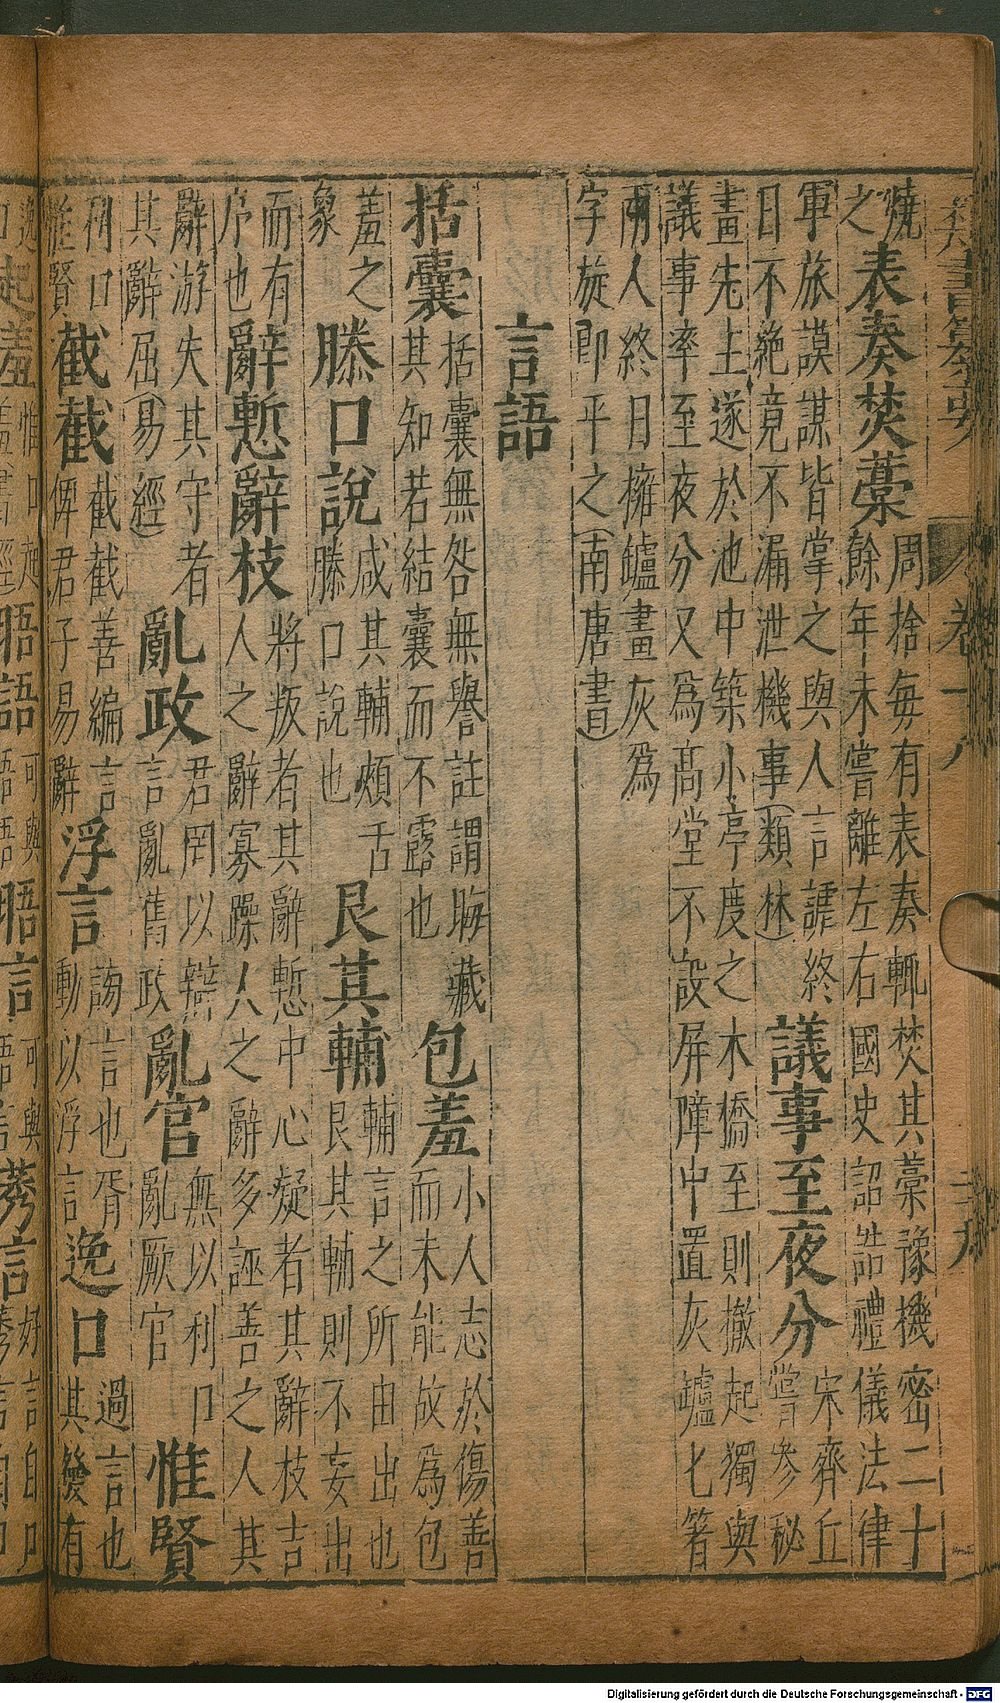 卷十八
燒
之
表奏焚藁
周捨每有表奏輒焚其藁豫機密二十
餘年未嘗離左右國史詔誥禮儀法律
軍旅謨謀皆掌之與人言謔終
日不絶竟不漏泄機事(類林)
議事至夜分
宋齊丘
嘗參秘
畫先主遂於池中築小亭度之木橋至則撤起獨與
議事率至夜分又爲髙堂不設屏障中置灰罏匕箸
兩人終日擁罏畫灰爲
字旋即平之(南唐書)
言語
括囊
括囊無咎無譽註謂晦藏
其知若結囊而不露也
包羞
小人志於傷善
而未能故爲包
羞之
象
滕口說
咸其輔頰舌
滕口說也
艮其輔
輔言之所由出也
艮其輔則不妄出
而有
序也
辭慙辭枝
將叛者其辭慙中心疑者其辭枝吉
人之辭寡躁人之辭多誣善之人其
辭游失其守者
其辭屈(易經)
亂政
君罔以辯
言亂舊政
亂官
無以利口
亂厥官
惟賢
利口
惟賢
截截
截截善編言
俾君子易辭
浮言
言也胥
動以浮言
逸口
過言也
其發有
Digitalisierung gefördert durch die Deutsche Forschungsgemeinschaft - DFG